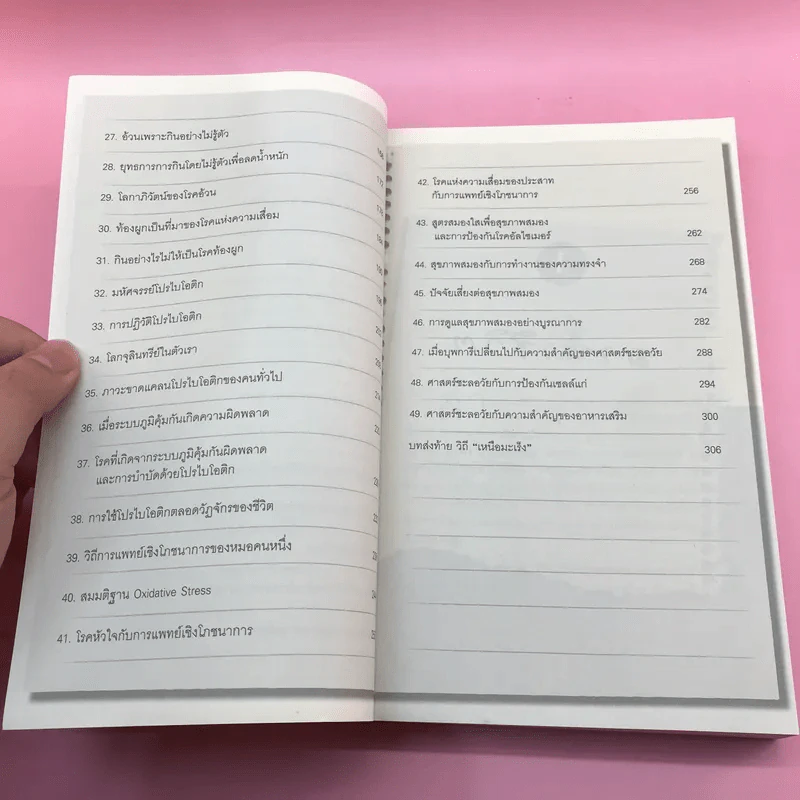 27. อ้วนเพราะกินอย่างไม่รู้ตัว
28. ยุทธการการกินโดยไม่รู้ตัวเพื่อลดน้ำหนัก
29. โลกาภิวัตน์ของโรคอ้วน
30. ท้องผูกเป็นที่มาของโรคแห่งความเสื่อม
31. กินอย่างไรไม่ให้เป็นโรคท้องผูก
32. มหัศจรรย์โปรไบโอติก
33. การปฏิวัติโปรไบโอติก
34. โลกจุลินทรีย์ในตัวเรา
35. ภาวะขาดแคลนโปรไบโอติกของคนทั่วไป
36. เมื่อระบบภูมิคุ้มกันเกิดความผิดพลาด
37. โรคที่เกิดจากระบบภูมิคุ้มกันผิดพลาด
และการบำบัดด้วยโปรไบโอติก
38. การใช้โปรไบโอติกตลอดวัฏจักรของชีวิต
39. วิถีการแพทย์เชิงโภชนาการของหมอคนหนึ่ง
40. สมมติฐาน Oxidative Stress
41. โรคหัวใจกับการแพทย์เชิงโภชนาการ
42. โรคแห่งความเสื่อมของประสาท
กับการแพทย์เชิงโภชนาการ 256
43. สูตรสมองใสเพื่อสุขภาพสมอง
และการป้องกันโรคอัลไซเมอร์ 262
44. สุขภาพสมองกับการทำงานของความทรงจำ 268
45. ปัจจัยเสี่ยงต่อสุขภาพสมอง 274
46. การดูแลสุขภาพสมองอย่างบูรณาการ 282
47. เมื่อบุพการีเปลี่ยนไปกับความสำคัญของศาสตร์ชะลอวัย 288
48. ศาสตร์ชะลอวัยกับการป้องกันเซลล์แก่ 294
49. ศาสตร์ชะลอวัยกับความสำคัญของอาหารเสริม 300
บทส่งท้าย วิถี “เหนือมะเร็ง” 306